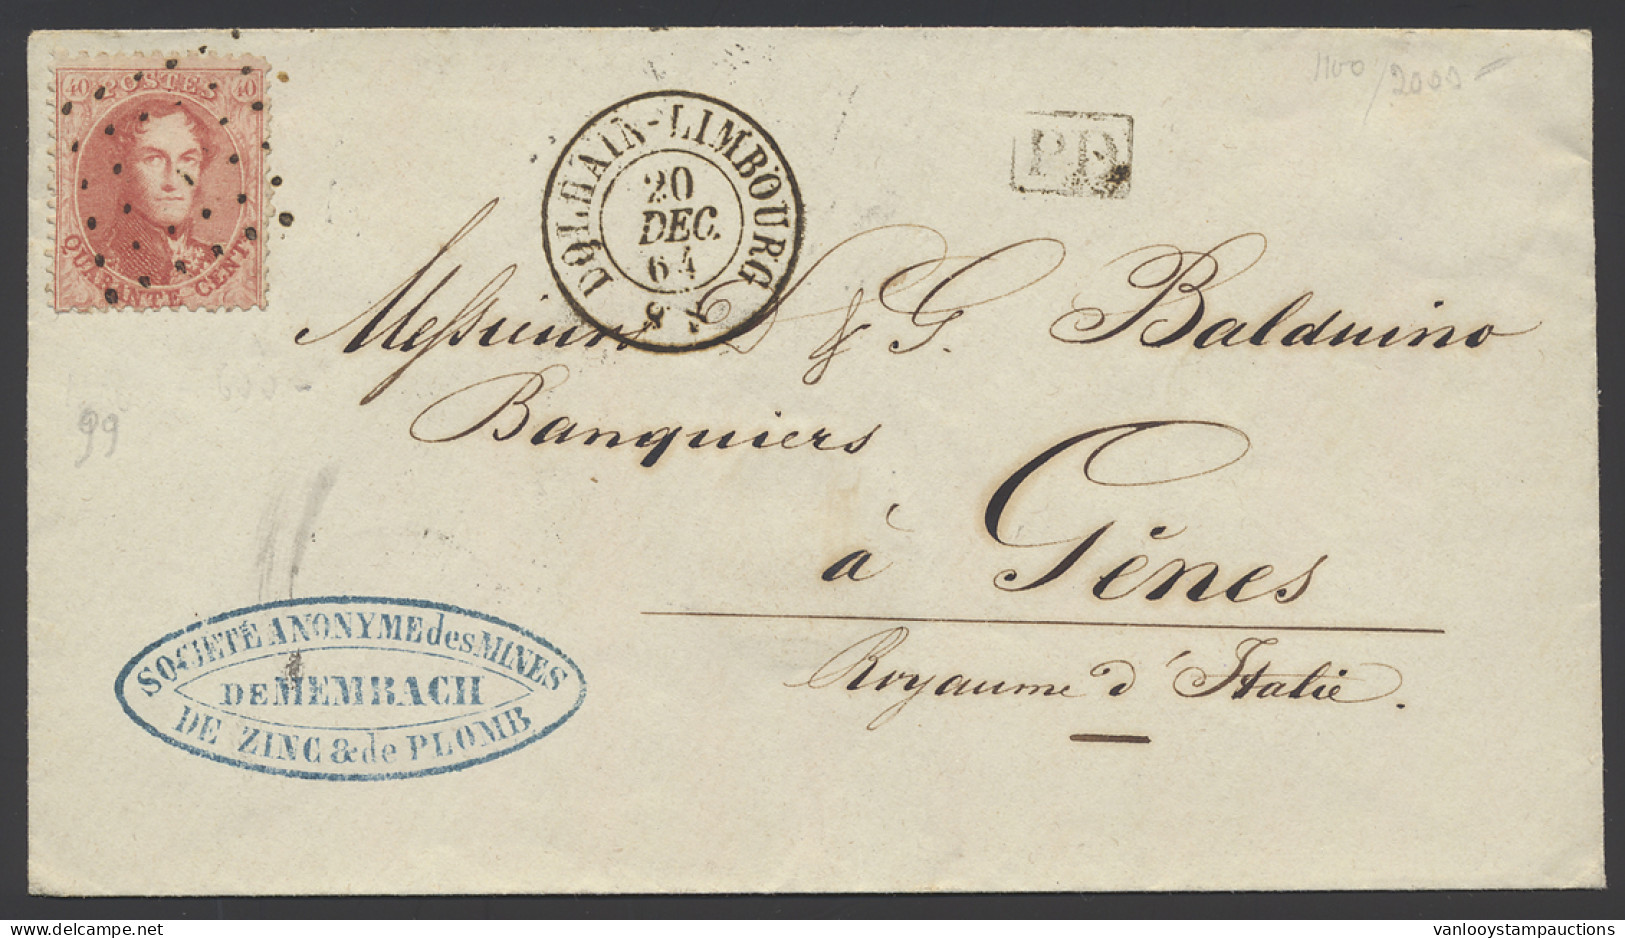 40 POSTES 40
QUARANTE CENTS
DOLHAIN-LIMBOURG
20
DEC.
64
8
PD
1100/2000=
Messieurs D & G. Balduino
Banquiers
à Gênes
Royaume d'Italie.
99
SOCIETÉ ANONYME des MINES
DE MEMBACH
DE ZINC & de PLOMB
vanlooystampauctions